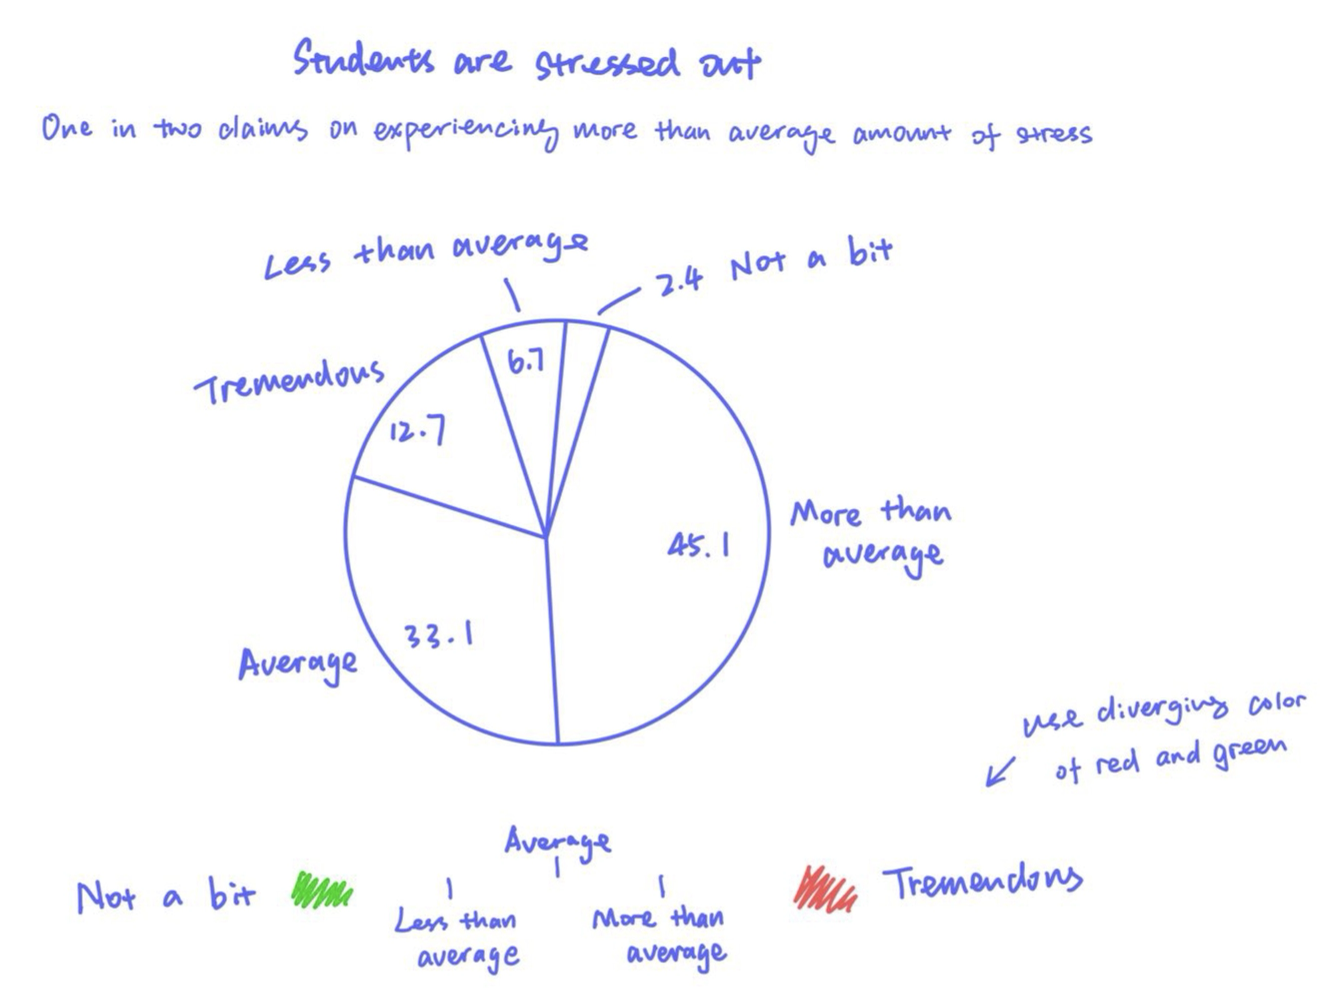 Students are stressed out
One in two claims on experiencing more than average amount of stress
Less than average
2.4 Not a bit
Tremendous
6.7
12.7
45.1
More than
average
33.1
Average
use diverging color
of red and green
Average
Not a bit
Less than
average
More than
average
Tremendous